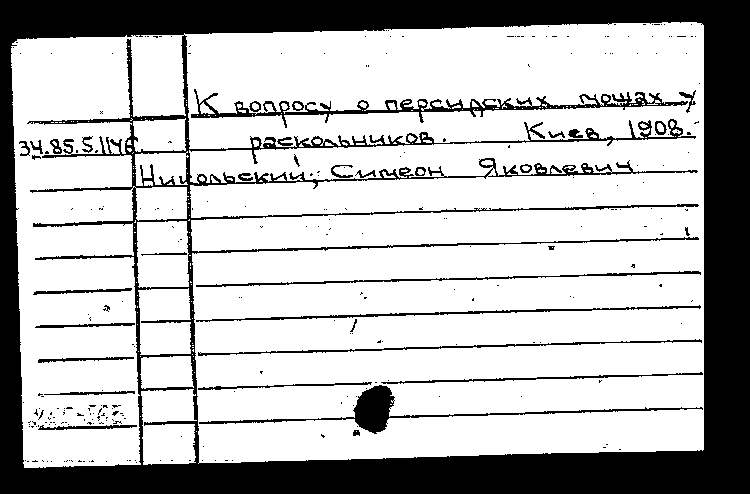 К вопросу о персидских мощах у
34.85.5.1146. раскольников. Киев, 1908.
Никольский, Симеон Яковлевич